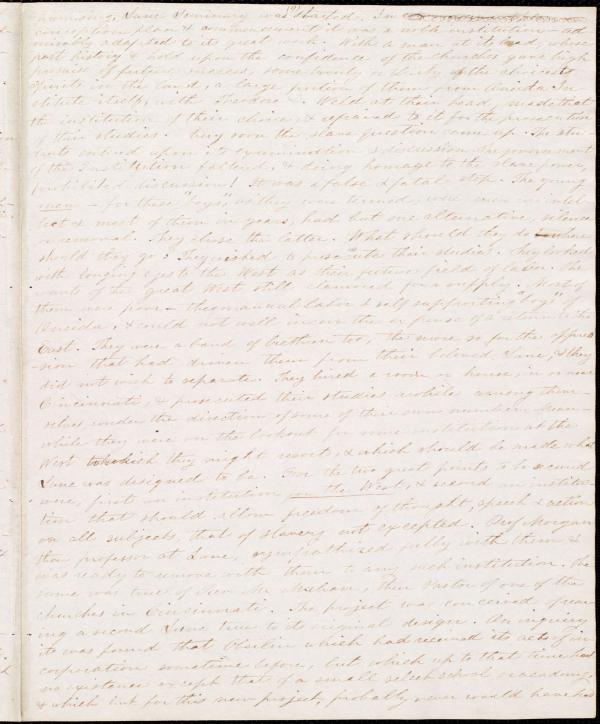 Lane Seminary was started. In
conception plan & commencement it was a noble institution — ad-
mirably adapted to its great work. With a man at its head, whose
past history & hold upon the confidence of the churches gave high
of future success, some twenty or thirty of the choicest
spirits in the land, a large portion of them from Oneida In-
stitute itself, with Theodore D. Weld at their head, made that
the institution of their choice, & repaired to it for the prosecution
of their studies. Very soon the slave question came up. The stu-
dents entered upon its examination & discussion. The government
of the Institution faltered, & doing homage to the slave power,
prohibited discussion! It was a false & fatal step. The young
men — for these "boys" as they were termed, were men in intel-
lect & most of them in years, had but one alternative, silence
or removal. They chose the latter. What should they do where
should they go? They wished to prosecute their studies. They looked
with longing eyes to the West as their future field of labor. The
wants of the great West still clamored for a supply. Most of
them were poor — the manual labor & self supporting "boys" of
Oneida, & could not well incur the expense of a return to the
East. They were a band of brethren too, the more so for the oppres-
sion that had driven them from their beloved Lane, & they
did not wish to separate. They hired a room or house, in or near
Cincinnati, & prosecuted their studies awhile among them-
selves under the direction of some of their own number. Mean-
while they were on the lookout for some institution at the
West to which they might resort, & which should be made what
Lane was designed to be. For the two great points to be secured
were, first an institution in the West, & second an institu-
tion that should allow freedom of thought, speech & action
on all subjects, that of slavery not excepted. Prof Morgan
then professor at Lane, sympathized fully with them &
was ready to remove with them to any such institution. The
same was true of Rev Mr. Mahan, then Pastor of one of the
churches in Cincinnati. The project was conceived of rear-
ing a second Lane true to its original design. On inquiry
it was found that Oberlin which had received its acts of in-
corporation sometime before, but which up to that time had
no existence except that of a small select school or academy,
& which but for this new project, probably never would have had